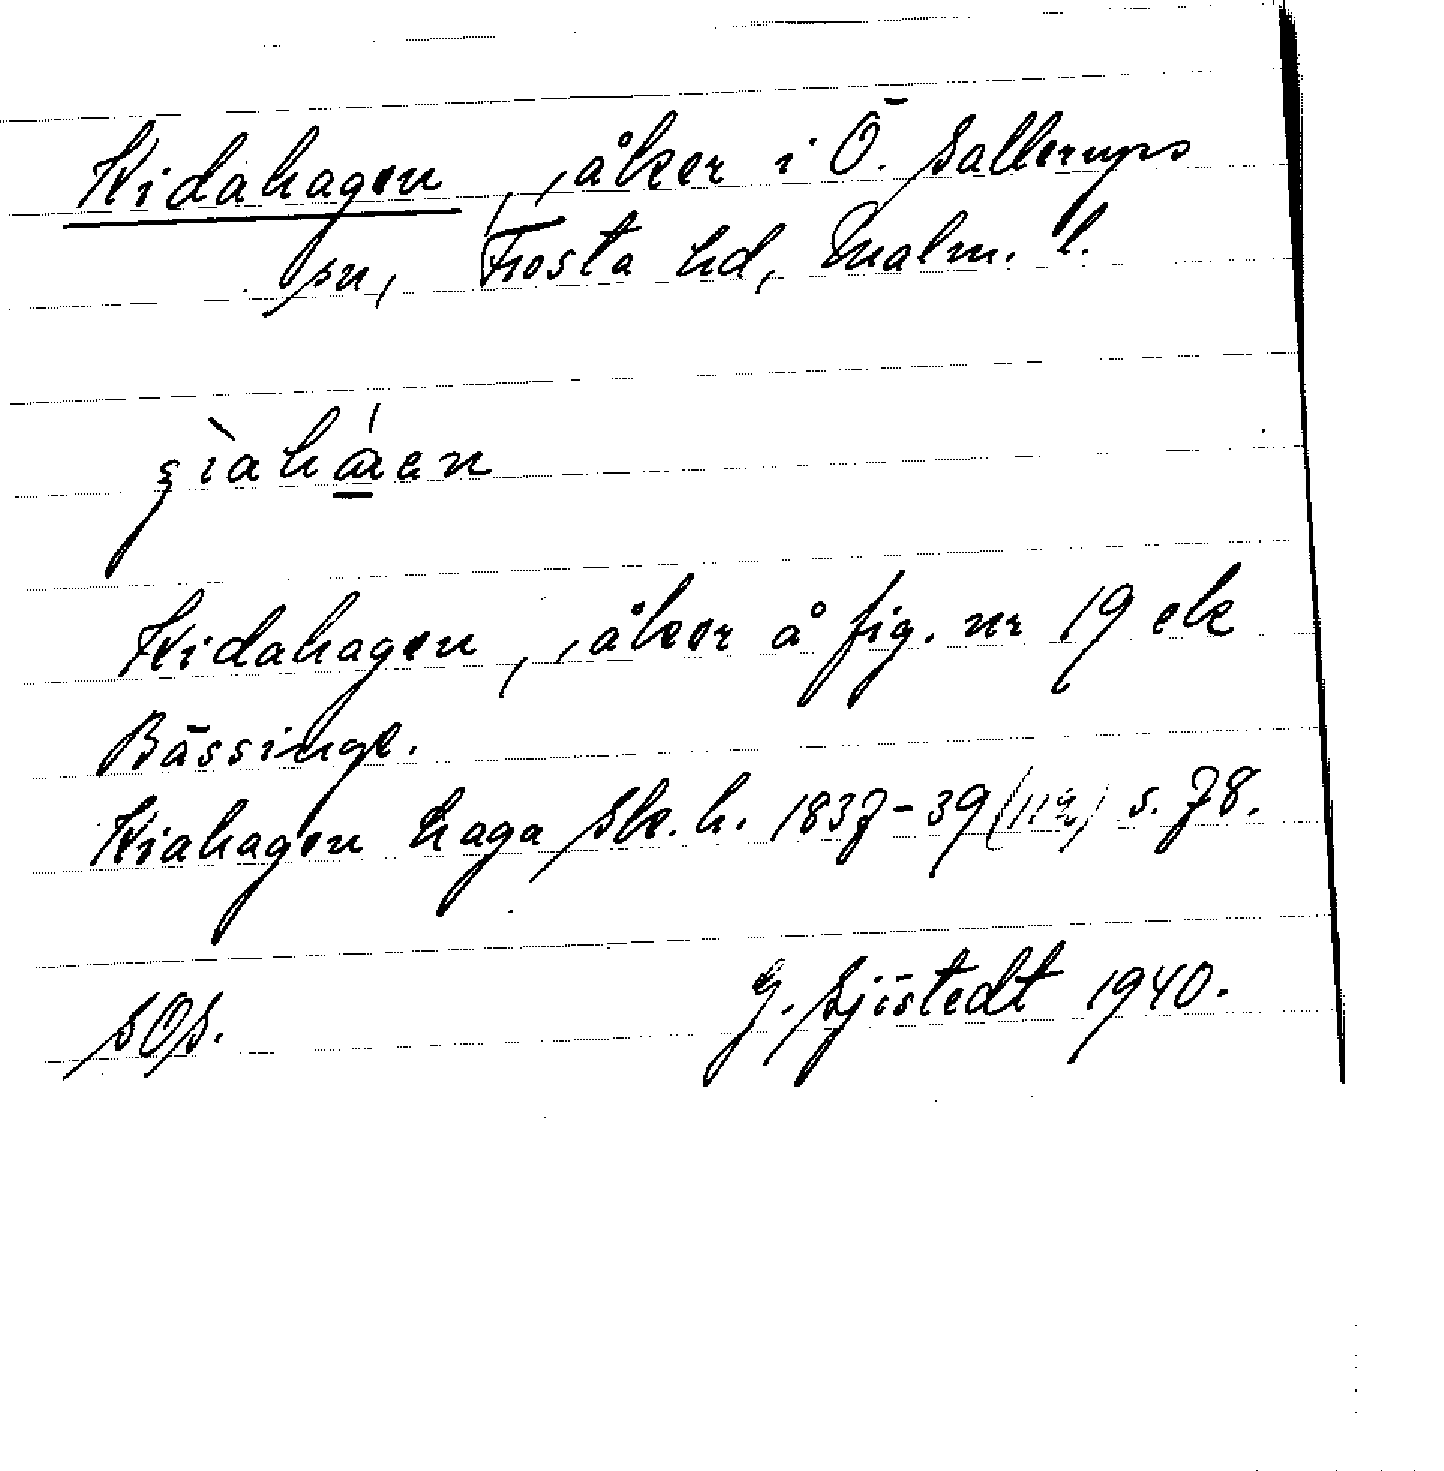 Kidahagen, åker i Ö. Sallerups
sn, Frosta hd, Malm. l.
Kidahagen, åker å fig. nr 19 ek
Bässinge.
Kiahagen haga Sk. h. 1837-39 (112) s. 78.
SOS. G. Sjöstedt 1940.